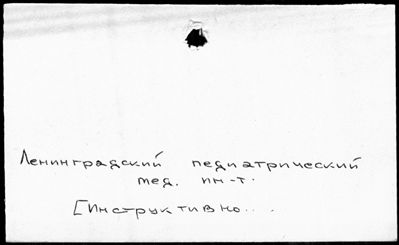 Ленинградский педиатрический
мед. ин-т.
[Инструктивно...